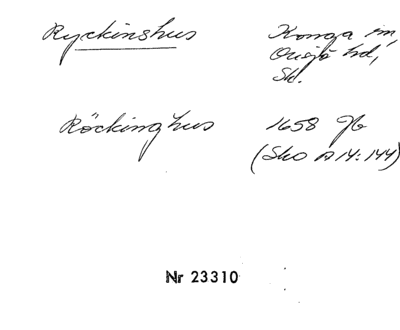 Ryckinshus Konga sn,
Onsjö hd,
Sk.
Röckinghus 1658 Jb
(Sko A 14:144)
Nr 23310